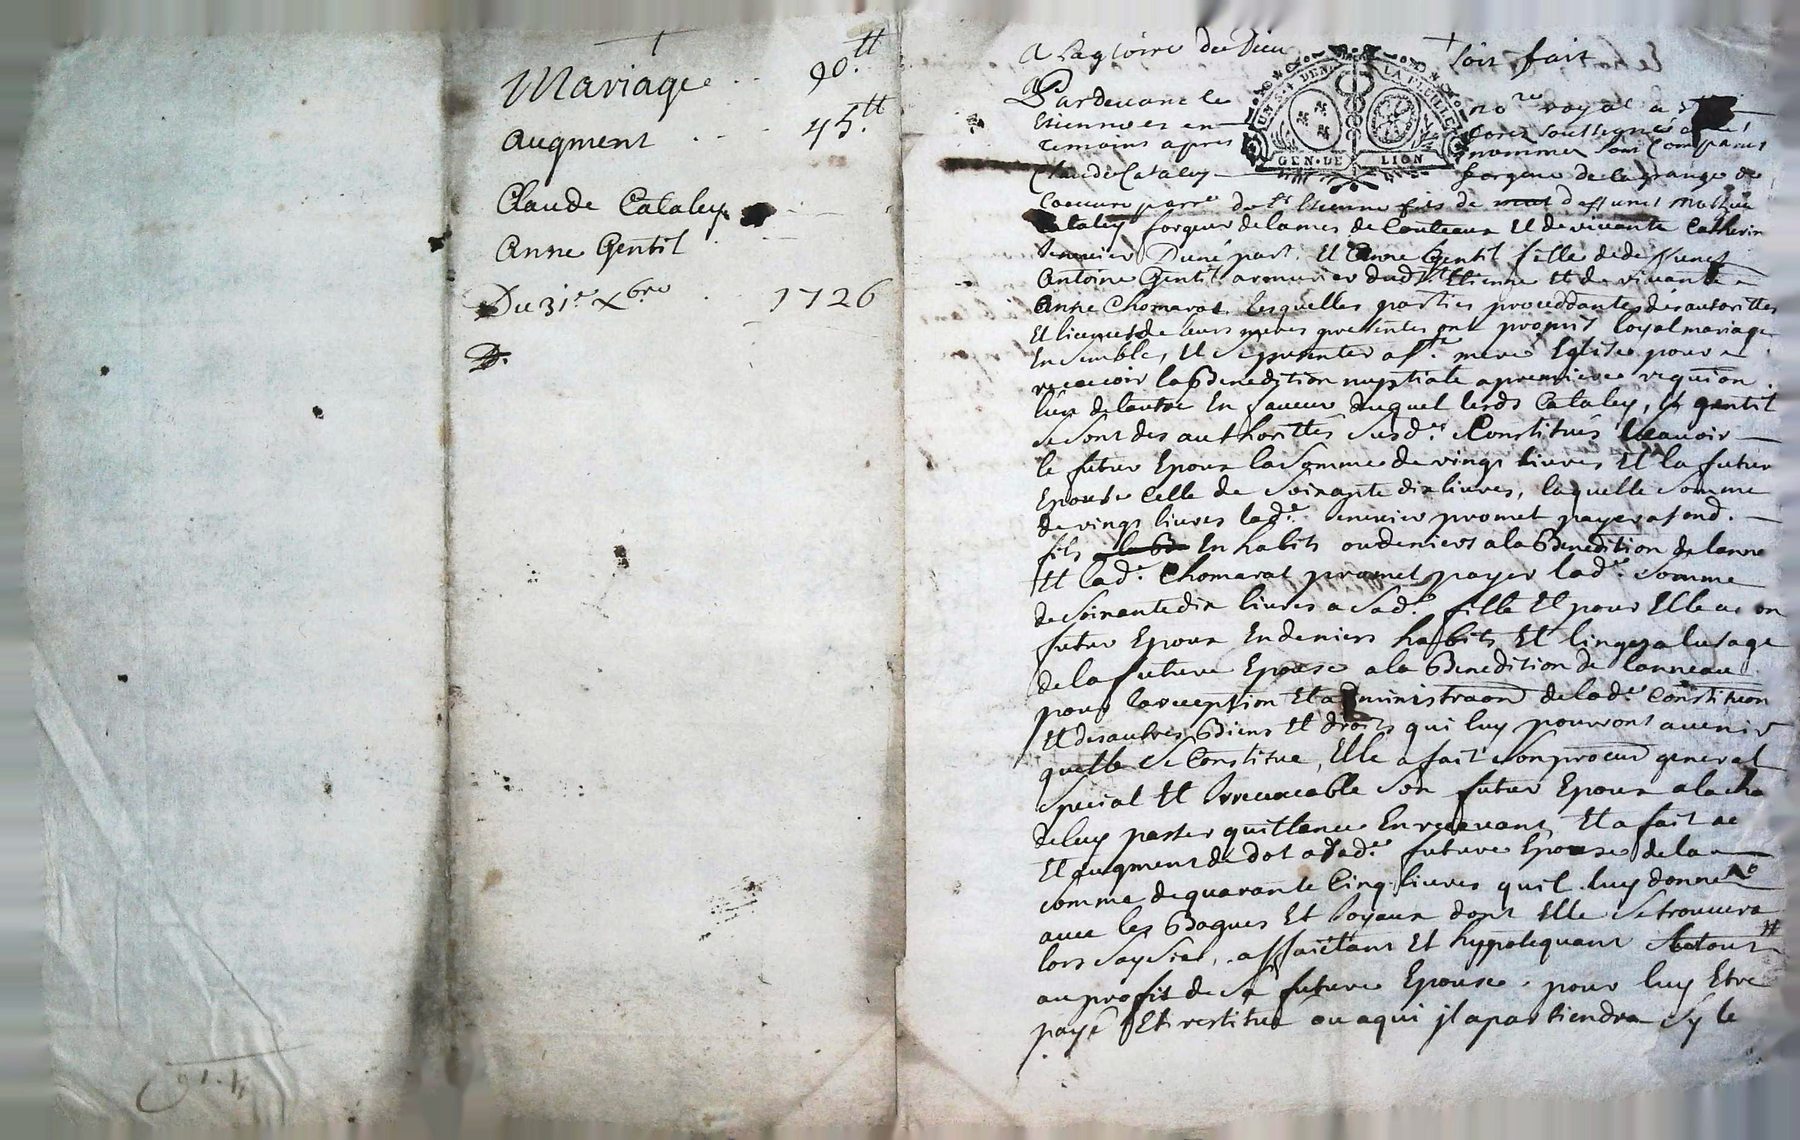 Mariage .. 90.tt
augment . . . 45.tt
Claude Cataley
Anne Gentil
Du 31e. Xbre . 1726
A La gloire de Dieu soit fait
Pardevant le no.re royal a St
Etienne et en forez soussigné et
temoins apres nommez sont comparus
Claude Cataley forgeur de la grange de
Loeuure parre. de St. Etienne fils de deffunct Mathieu
Cataley forgeur de lames de Couteaux Et de viuante Catherin
D'une part. Et Anne Gentil fille de deffunct
Antoine Gentil armurier dud. St. Etienne Et de viuante
Anne Chomarat. lesquelles parties proceddantes des autorittes
Et licences de leurs meres presentes ont promis loyal mariage
Ensemble, Et se presenter a ste. mere Eglise pour
receuoir la Benedition nuptiale a premiere requi.on
lun de lautre En faueur duquel lesds Cataley, et gentil
se sont des authorittes susd.es Constitués scauoir
le futur Epoux la somme de vingt liures Et la future
Epouse celle de soixante dix liures, laquelle somme
de vingt liures lad.e promet payer a sond.
fils En habits ou deniers a la Benedition de lanne
Et lad.e Chomarat promet payer lad.e somme
de soixante dix liures a sad.e fille Et pour Elle a son
futur Epoux En deniers habits Et linges a lusage
de la future Epouse a la Benedition de lanneau.
pour la reception Et administraon de lad.e Constituon
Et des autres Biens Et droits qui luy pourront auenir
quelle se Constitue, Elle a fait son procur general
special Et Irreuocable son futur Epoux a la cha
de luy passer quittance En receuant, Et a fait ce
Et augment de dot a sad.e future Epouse de la
somme de quarante Cinq liures quil luy donne
auec les Bagues Et Joyaux dont Elle se trouuera
lors saysie, affaictant Et hypotequant le tout
au profit de sa future Epouse pour luy Etre
payé Et restitué ou a qui jl apartiendra sy le